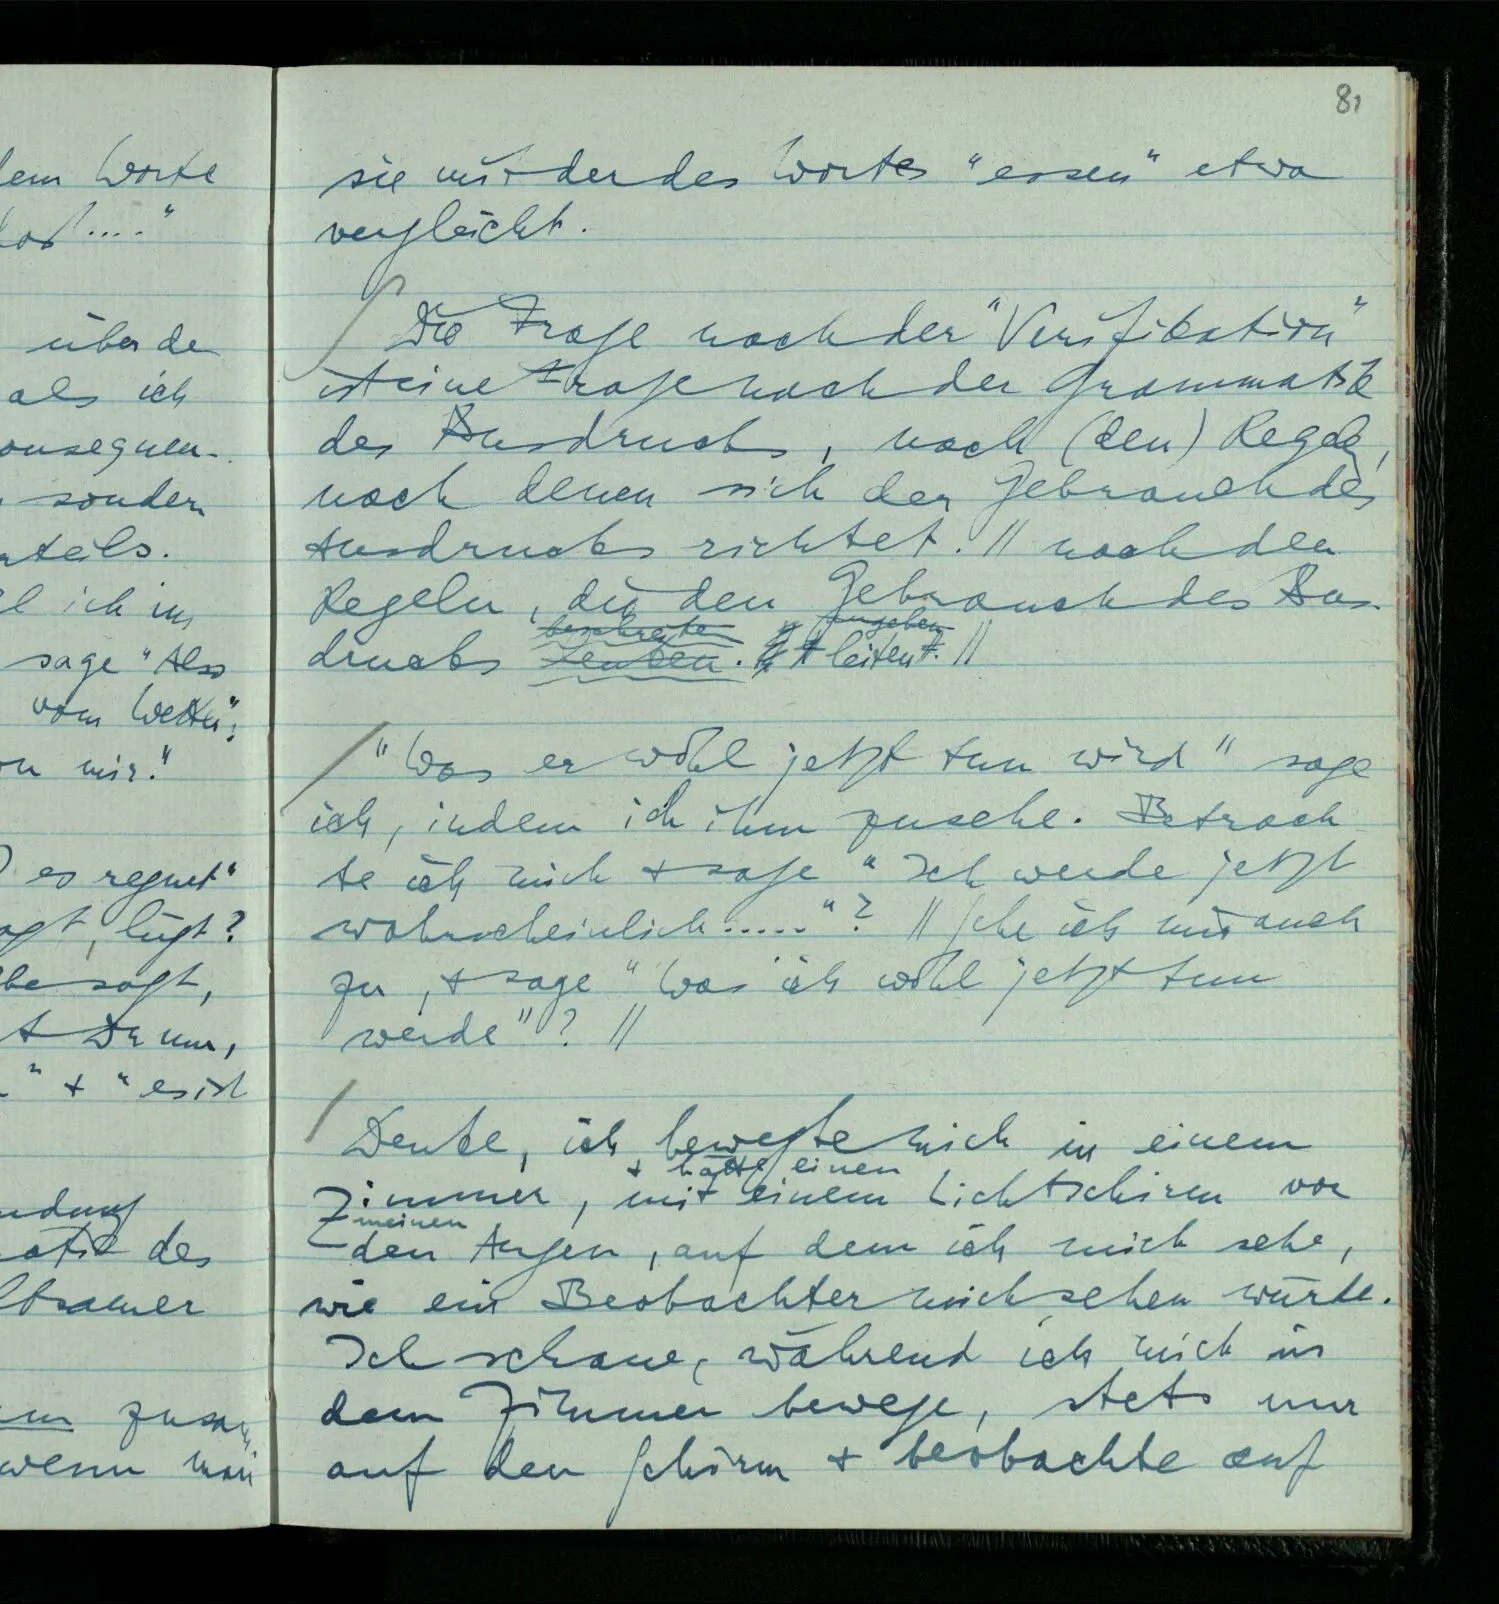 dem Worte
über de
als ich
onsequen-
sondern
rteils.
ich im
sage "Also
vom Wetter";
mir."
es regnet"
lügt?
sagt,
Du nur,
" + "es ist
des
ltsamer
zusam
wenn man
81
sie mit der des Wortes "essen" etwa
vergleicht.
Die Frage nach der "Verifikation"
ist eine Frage nach der Grammatik
des Ausdrucks, nach (den) Regeln,
nach denen sich der Gebrauch des
Ausdrucks richtet. || nach den
Regeln, die den Gebrauch des Aus-
beschreiben angeben
drucks lenken. leiten. ||
"Was er wohl jetzt tun wird" sage
ich, indem ich ihm zusehe. Betrach
te ich mich + sage "Ich werde jetzt
wahrscheinlich ....."? || Sehe ich mir auch
zu, + sage "Was ich wohl jetzt tun
werde"? ||
Denke, ich bewegte mich in einem
+ hätte einen
Zimmer, mit einem Lichtschirm vor
meinen
den Augen, auf dem ich mich sehe,
wie ein Beobachter mich sehen würde.
Ich schaue, während ich mich in
dem Zimmer bewege, stets nur
auf den Schirm + beobachte auf